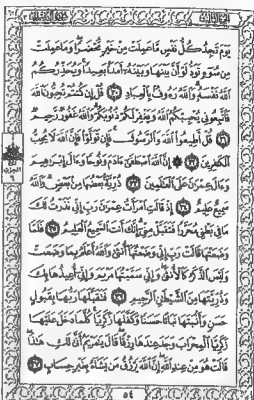 الجزء الثالث
سورة آل عمران
يَوْمَ تَجِدُ كُلُّ نَفْسٍ مَّا عَمِلَتْ مِنْ خَيْرٍ مُّحْضَرًا وَمَا عَمِلَتْ
مِن سُوءٍ تَوَدُّ لَوْ أَنَّ بَيْنَهَا وَبَيْنَهُ أَمَدًا بَعِيدًا وَيُحَذِّرُكُمُ
اللَّهُ نَفْسَهُ وَاللَّهُ رَءُوفٌ بِالْعِبَادِ ٣٠ قُلْ إِن كُنتُمْ تُحِبُّونَ اللَّهَ
فَاتَّبِعُونِي يُحْبِبْكُمُ اللَّهُ وَيَغْفِرْ لَكُمْ ذُنُوبَكُمْ وَاللَّهُ غَفُورٌ رَّحِيمٌ
٣١ قُلْ أَطِيعُوا اللَّهَ وَالرَّسُولَ فَإِن تَوَلَّوْا فَإِنَّ اللَّهَ لَا يُحِبُّ
الْكَافِرِينَ ٣٢ ۞ إِنَّ اللَّهَ اصْطَفَى آدَمَ وَنُوحًا وَآلَ إِبْرَاهِيمَ
وَآلَ عِمْرَانَ عَلَى الْعَالَمِينَ ٣٣ ذُرِّيَّةً بَعْضُهَا مِن بَعْضٍ وَاللَّهُ
سَمِيعٌ عَلِيمٌ ٣٤ إِذْ قَالَتِ امْرَأَتُ عِمْرَانَ رَبِّ إِنِّي نَذَرْتُ لَكَ
مَا فِي بَطْنِي مُحَرَّرًا فَتَقَبَّلْ مِنِّي إِنَّكَ أَنتَ السَّمِيعُ الْعَلِيمُ ٣٥ فَلَمَّا
وَضَعَتْهَا قَالَتْ رَبِّ إِنِّي وَضَعْتُهَا أُنثَى وَاللَّهُ أَعْلَمُ بِمَا وَضَعَتْ
وَلَيْسَ الذَّكَرُ كَالْأُنثَى وَإِنِّي سَمَّيْتُهَا مَرْيَمَ وَإِنِّي أُعِيذُهَا بِكَ
وَذُرِّيَّتَهَا مِنَ الشَّيْطَانِ الرَّجِيمِ ٣٦ فَتَقَبَّلَهَا رَبُّهَا بِقَبُولٍ
حَسَنٍ وَأَنبَتَهَا نَبَاتًا حَسَنًا وَكَفَّلَهَا زَكَرِيَّا كُلَّمَا دَخَلَ عَلَيْهَا
زَكَرِيَّا الْمِحْرَابَ وَجَدَ عِندَهَا رِزْقًا قَالَ يَا مَرْيَمُ أَنَّى لَكِ هَذَا
قَالَتْ هُوَ مِنْ عِندِ اللَّهِ إِنَّ اللَّهَ يَرْزُقُ مَن يَشَاءُ بِغَيْرِ حِسَابٍ ٣٧
٥٤